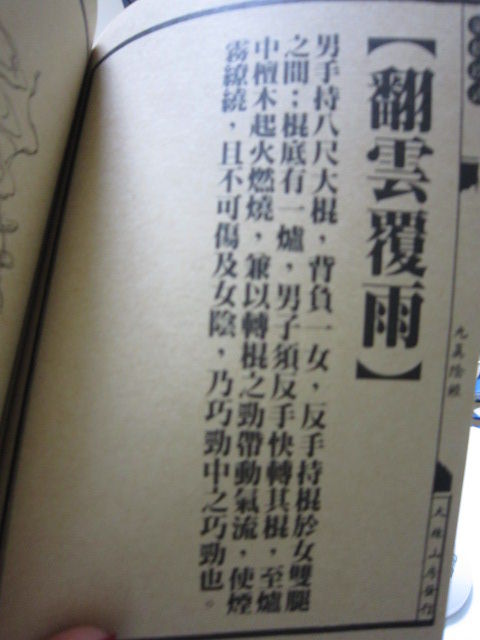 【翻雲覆雨】
男手持八尺大棍，背負一女，反手持棍於女雙腿
之間；棍底有一爐，男子須反手快轉其棍，至爐
中檀木起火燃燒，兼以轉棍之勁帶動氣流，使煙
霧繚繞，且不可傷及女陰，乃巧勁中之巧勁也。
九真陰經